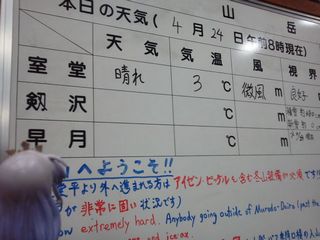 本日の天気(4月24日午前8時現在) 山岳
天気 気温 風 視界
室堂 晴れ 3℃ 微風m 良好
剱沢 ℃ m
早月 ℃ m
へようこそ!!
平より外へ進まれる方は アイゼン・ピッケルを含む冬山装備が必須です!!
が 非常に固い 状況です)
now extremely hard. Anybody going outside of Murodo-Daira (past the
and ice axe.